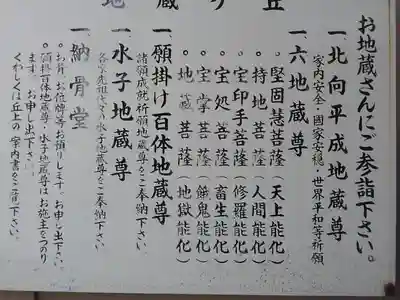 地蔵り丘
お地蔵さんにご参詣下さい。
一、北向平成地蔵尊
家内安全・國家安穏・世界平和等祈願
一、六地蔵尊
・堅固慧菩薩（天上能化）
・持地菩薩（人間能化）
・宝印手菩薩（修羅能化）
・宝処菩薩（畜生能化）
・宝掌菩薩（餓鬼能化）
・地蔵菩薩（地獄能化）
一、願掛け百体地蔵尊
諸願成就祈願地蔵尊をご奉納下さい
一、水子地蔵尊
各家先祖代々の水子地蔵尊をご奉納下さい
一、納骨堂
。お骨、お位牌等お預りします。お申し出下さい。
。願掛百体地蔵尊・水子地蔵尊はお施主をつのり
ます。お申し出下さい。
くわしくは丘上の案内書をご覧下さい。